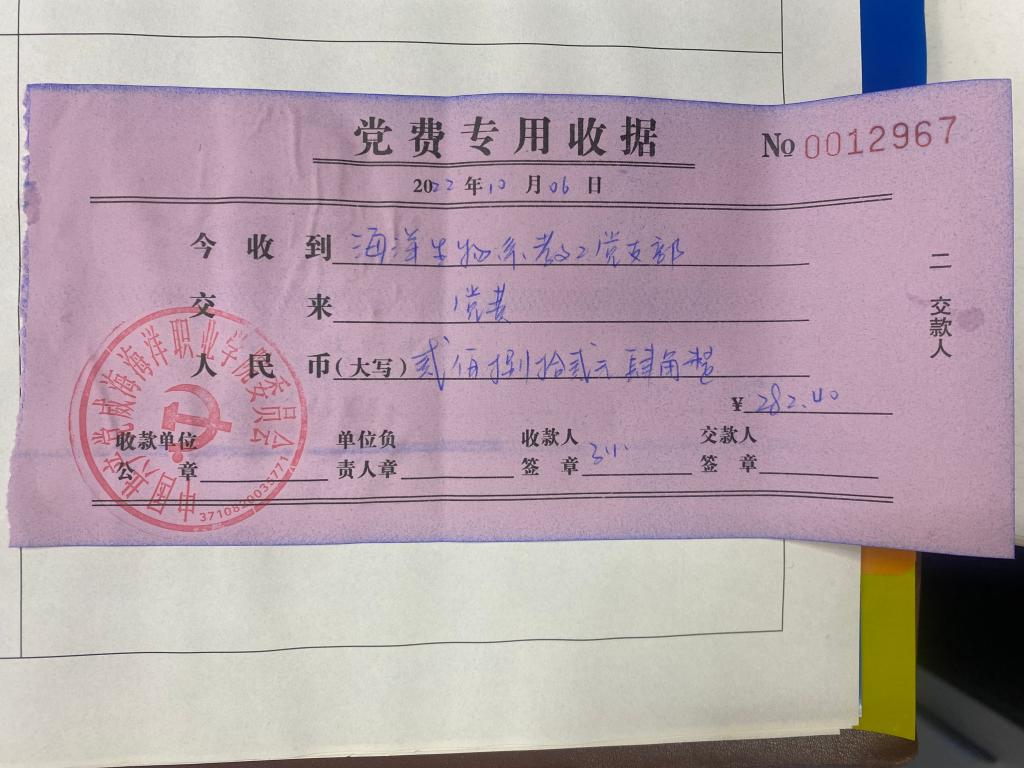 党费专用收据
No 0012967
2022年10月06日
今收到 海洋生物系教工党支部
交来 党费
人民币(大写) 贰佰捌拾贰元肆角整
¥ 282.40
收款单位 单位负 收款人 交款人
公章 责人章 签章 签章
二 交款人
中国共产党威海海洋职业学院委员会
3710820035771